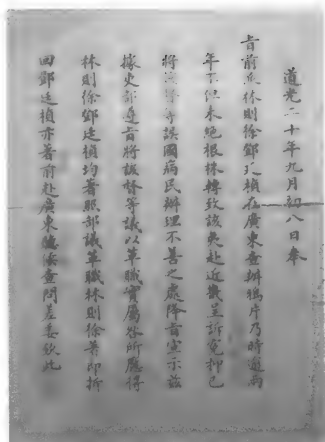 道光二十年九月初八日奉
旨前派林則徐鄧廷楨在廣東查辦鴉片乃時逾兩
年不但未絕根株轉致該夷赴近畿呈訴冤抑已
將等誤國病民辦理不善之處降旨宣示茲
據吏部遵旨將該督等議以革職實屬咎所應得
林則徐鄧廷楨均著照部議革職林則徐著即折
回鄧廷楨亦著前赴廣東隨備查問差委欽此